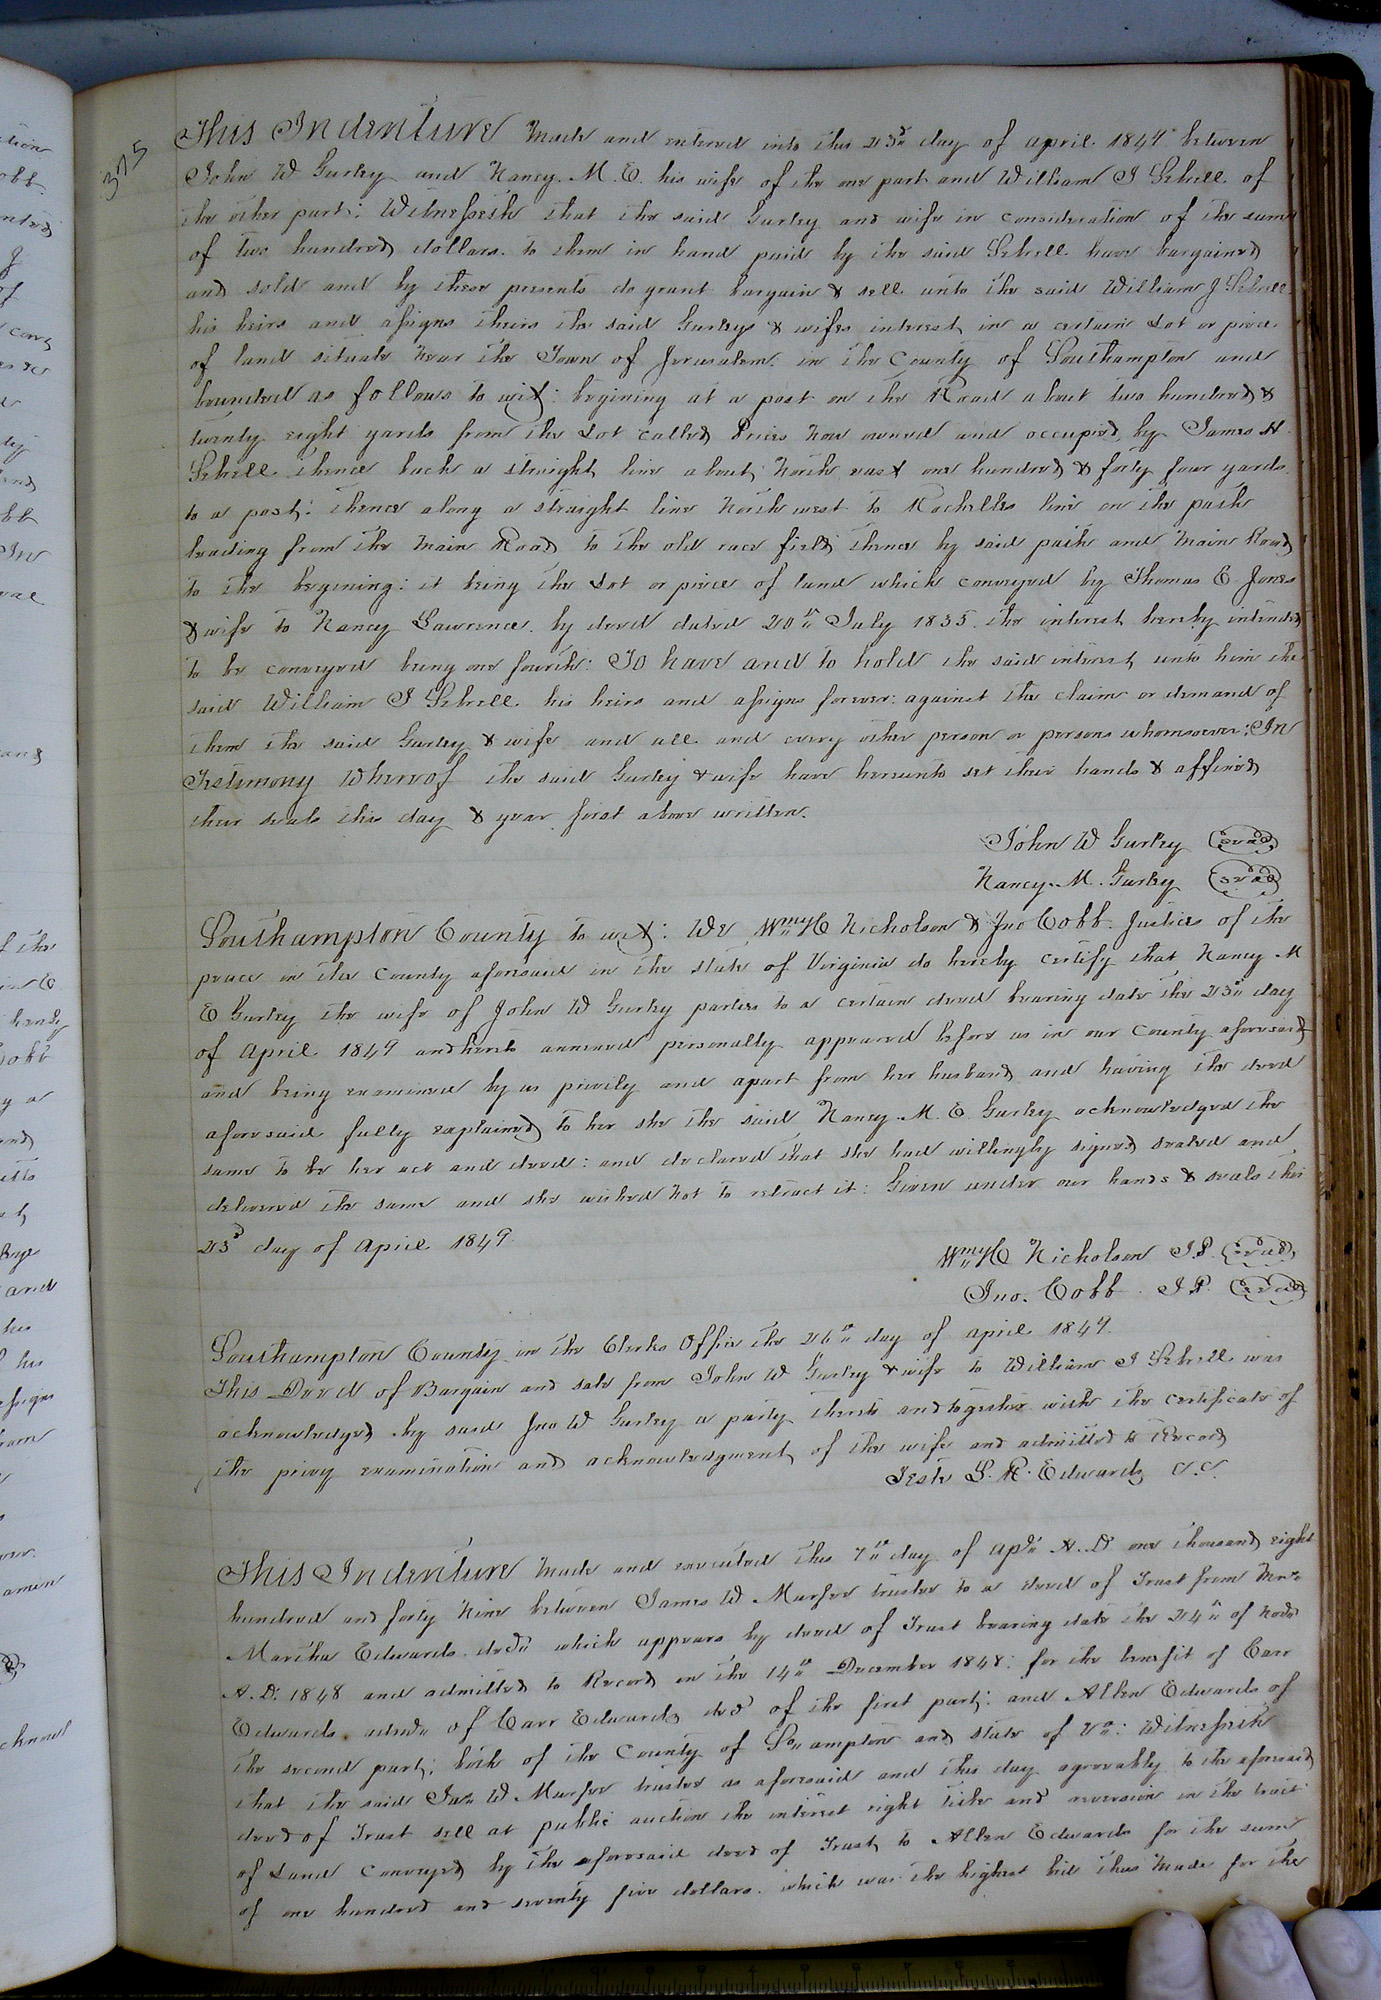 375
This Indenture Made and entered into this 23d day of april 1849 between
John W Gurley and Nancy. M. E. his wife of the one part and William J Sebrell of
the other part: Witnesseth that the said Gurley and wife in consideration of the sum
of two hundred dollars. to them in hand paid by the said Sebrell have bargained
and sold and by these presents do grant bargain & sell unto the said William J Sebrell
his heirs and assigns theirs the said Gurleys & wifes interest in a certain Lot or piece
of land situate Near the Town of Jerusalem. in the County of Southampton and
bounded as follows to wit: begining at a post on the Road about two hundred &
twenty eight yards from the Lot called Prices Now owned and occupied by James H
Sebrell thence back a straight line about North east one hundred & forty four yards
to a post: thence along a straight line North west to Rochelles line on the path
leading from the Main Road to the old race field thence by said path and Main Road
to the begining: it being the Lot or piece of land which conveyed by Thomas E. Jones
& wife to Nancy Lawrence. by deed dated 20th July 1835. the interest hereby intended
to be conveyed being one fourth: To have and to hold the said interest unto him the
said William J Sebrell his heirs and assigns forever: against the claim or demand of
them the said Gurley & wife and all and every other person or persons whomsoever: In
Testimony Whereof the said Gurley & wife have hereunto set their hands & affixed
their seals this day & year first above written.
John W Gurley (seal)
Nancy. M. E Gurley (seal)
Southampton County to wit: We Wm H Nicholson & Jno Cobb. Justices of the
peace in the County aforesaid in the state of Virginia do hereby certify that Nancy M
E Gurley the wife of John W Gurley parties to a certain deed bearing date the 23d day
of april 1849 and hereto annexed personally appeared before us in our County aforesaid
and being examined by us privily and apart from her husband and having the deed
aforesaid fully explained to her she the said Nancy. M. E. Gurley acknowledged the
same to be her act and deed: and declared that she had willingly signed sealed and
delivered the same and she wished Not to retract it: Given under our hands & seals this
23d day of april 1849.
Wm H Nicholson J.P. (seal)
Jno. Cobb. J.P. (seal)
Southampton County in the Clerks Office the 26th day of april 1849.
This Deed of Bargain and sale from John W Gurley & wife to William J Sebrell was
acknowledged by said Jno W Gurley a party thereto and together with the certificate of
the privy examination and acknowledgment of the wife and admitted to Record
Teste L. R. Edwards C.C.
This Indenture Made and executed this 7th day of apl A.D. one thousand eight
hundred and forty Nine between James W Murfee trustee to a deed of Trust from Mrs
Martha Edwards. decd which appears by deed of Trust bearing date the 24th of Novr
A.D. 1848 and admitted to Record on the 14th December 1848: for the benefit of Carr
Edwards of Carr Edwards decd of the first part: and Allen Edwards of
the second part; both of the County of Soampton and state of Va: Witnesseth
that the said Jas W Murfee trustee as aforesaid and this day agreeably to the aforesaid
deed of Trust sell at public auction the interest right title and reversion in the tract
of Land conveyed by the aforesaid deed of Trust to Allen Edwards for the sum
of one hundred and seventy five dollars. which was the highest bid thus Made for the